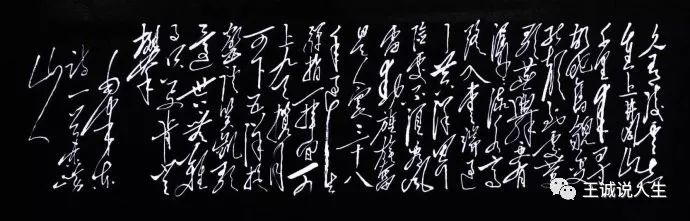 久有凌云志
重上井冈山
千里来寻
故地旧貌变
新颜到处莺
歌燕舞更有
潺潺流水高
路入云端过
了黄洋界
险处不须看风
雷动旌旗奋
是人寰三十八
年过去
弹指一挥间可
上九天揽月
可下五洋捉
鳖谈笑凯歌
还世上无难
事只要肯登
攀
山人
王诚说人生